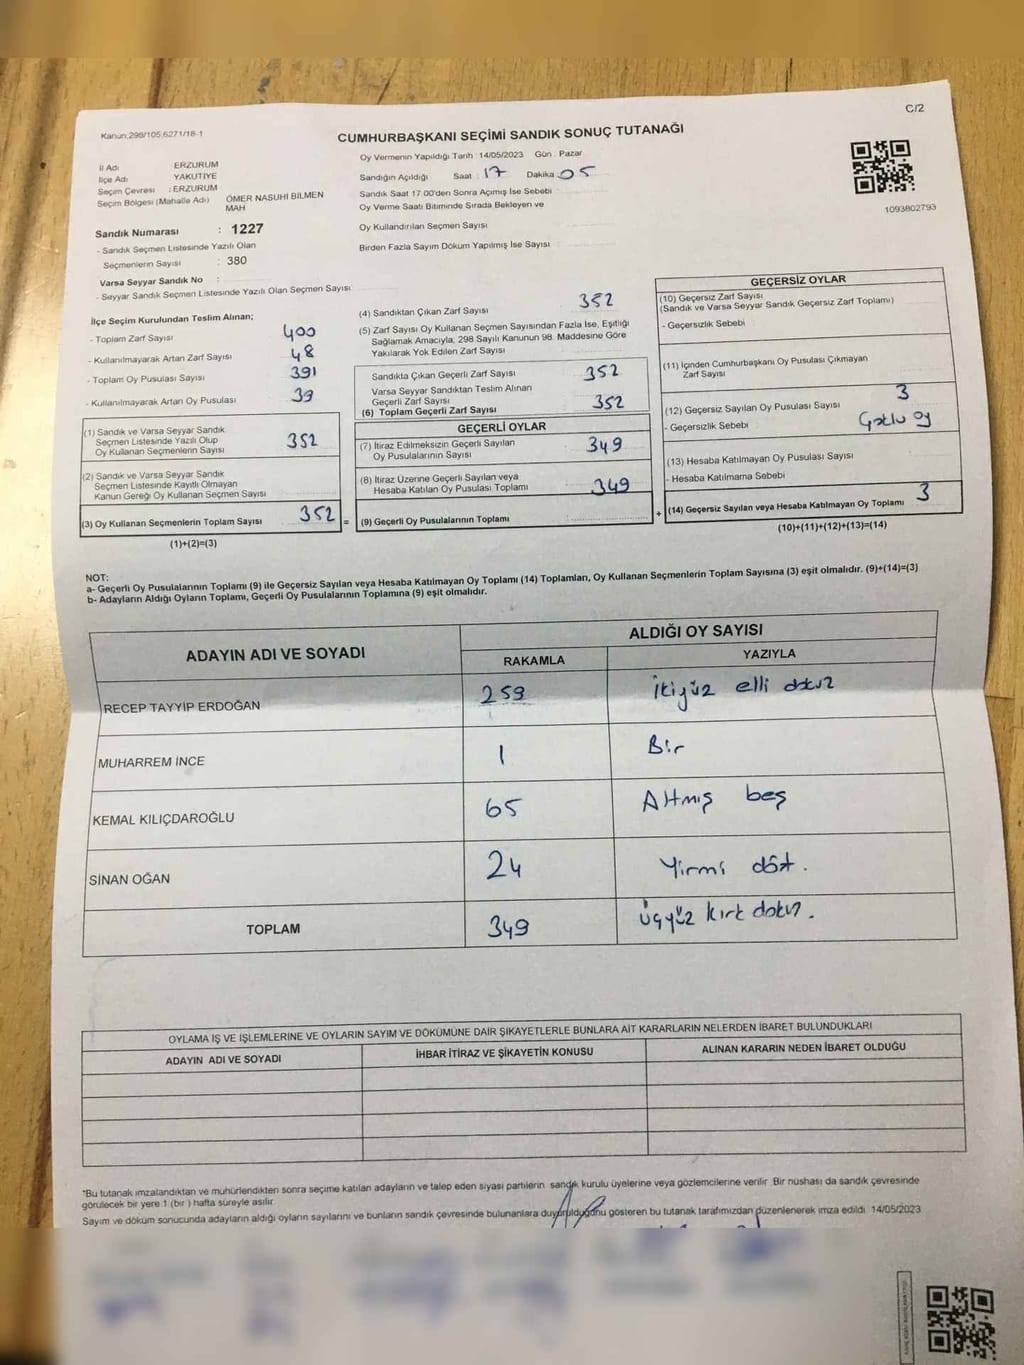 C/2
Kanun:298/105,6271/18-1
CUMHURBAŞKANI SEÇİMİ SANDIK SONUÇ TUTANAĞI
İl Adı : ERZURUM
İlçe Adı : YAKUTİYE
Seçim Çevresi : ERZURUM
Seçim Bölgesi (Mahalle Adı) : ÖMER NASUHİ BİLMEN
MAH
Sandık Numarası : 1227
- Sandık Seçmen Listesinde Yazılı Olan
Seçmenlerin Sayısı : 380
Varsa Seyyar Sandık No :
- Seyyar Sandık Seçmen Listesinde Yazılı Olan Seçmen Sayısı
Oy Vermenin Yapıldığı Tarih : 14/05/2023 Gün : Pazar
Sandığın Açıldığı Saat : 17 Dakika : 05
Sandık Saat 17.00'den Sonra Açımış İse Sebebi
Oy Verme Saati Bitiminde Sırada Bekleyen ve
Oy Kullandırılan Seçmen Sayısı
Birden Fazla Sayım Döküm Yapılmış İse Sayısı
1093802793
İlçe Seçim Kurulundan Teslim Alınan;
- Toplam Zarf Sayısı 400
- Kullanılmayarak Artan Zarf Sayısı 48
- Toplam Oy Pusulası Sayısı 391
- Kullanılmayarak Artan Oy Pusulası 39
(1) Sandık ve Varsa Seyyar Sandık
Seçmen Listesinde Yazılı Olup
Oy Kullanan Seçmenlerin Sayısı 352
(2) Sandık ve Varsa Seyyar Sandık
Seçmen Listesinde Kayıtlı Olmayan
Kanun Gereği Oy Kullanan Seçmen Sayısı
(3) Oy Kullanan Seçmenlerin Toplam Sayısı 352 =
(1)+(2)=(3)
(4) Sandıktan Çıkan Zarf Sayısı 352
(5) Zarf Sayısı Oy Kullanan Seçmen Sayısından Fazla İse, Eşitliği
Sağlamak Amacıyla, 298 Sayılı Kanunun 98. Maddesine Göre
Yakılarak Yok Edilen Zarf Sayısı
Sandıkta Çıkan Geçerli Zarf Sayısı 352
Varsa Seyyar Sandıktan Teslim Alınan
Geçerli Zarf Sayısı
(6) Toplam Geçerli Zarf Sayısı 352
GEÇERLİ OYLAR
(7) İtiraz Edilmeksizin Geçerli Sayılan
Oy Pusulalarının Sayısı 349
(8) İtiraz Üzerine Geçerli Sayılan veya
Hesaba Katılan Oy Pusulası Toplamı 349
(9) Geçerli Oy Pusulalarının Toplamı +
GEÇERSİZ OYLAR
(10) Geçersiz Zarf Sayısı
(Sandık ve Varsa Seyyar Sandık Geçersiz Zarf Toplamı)
- Geçersizlik Sebebi
(11) İçinden Cumhurbaşkanı Oy Pusulası Çıkmayan
Zarf Sayısı
(12) Geçersiz Sayılan Oy Pusulası Sayısı 3
- Geçersizlik Sebebi Çoklu oy
(13) Hesaba Katılmayan Oy Pusulası Sayısı
- Hesaba Katılmama Sebebi
(14) Geçersiz Sayılan veya Hesaba Katılmayan Oy Toplamı 3
(10)+(11)+(12)+(13)=(14)
NOT:
a- Geçerli Oy Pusulalarının Toplamı (9) ile Geçersiz Sayılan veya Hesaba Katılmayan Oy Toplamı (14) Toplamları, Oy Kullanan Seçmenlerin Toplam Sayısına (3) eşit olmalıdır. (9)+(14)=(3)
b- Adayların Aldığı Oyların Toplamı, Geçerli Oy Pusulalarının Toplamına (9) eşit olmalıdır.
ADAYIN ADI VE SOYADI ALDIĞI OY SAYISI
RAKAMLA YAZIYLA
RECEP TAYYİP ERDOĞAN 259 İkiyüz elli dokuz
MUHARREM İNCE 1 Bir
KEMAL KILIÇDAROĞLU 65 Altmış beş
SİNAN OĞAN 24 Yirmi dört.
TOPLAM 349 Üçyüz kırk dokuz.
OYLAMA İŞ VE İŞLEMLERİNE VE OYLARIN SAYIM VE DÖKÜMÜNE DAİR ŞİKAYETLERLE BUNLARA AİT KARARLARIN NELERDEN İBARET BULUNDUKLARI
ADAYIN ADI VE SOYADI İHBAR İTİRAZ VE ŞİKAYETİN KONUSU ALINAN KARARIN NEDEN İBARET OLDUĞU
*Bu tutanak imzalandıktan ve mühürlendikten sonra seçime katılan adayların ve talep eden siyasi partilerin sandık kurulu üyelerine veya gözlemcilerine verilir. Bir nüshası da sandık çevresinde
görülecek bir yere 1 (bir) hafta süreyle asılır.
Sayım ve döküm sonucunda adayların aldığı oyların sayılarını ve bunların sandık çevresinde bulunanlara duyurulduğunu gösteren bu tutanak tarafımızdan düzenlenerek imza edildi. 14/05/2023